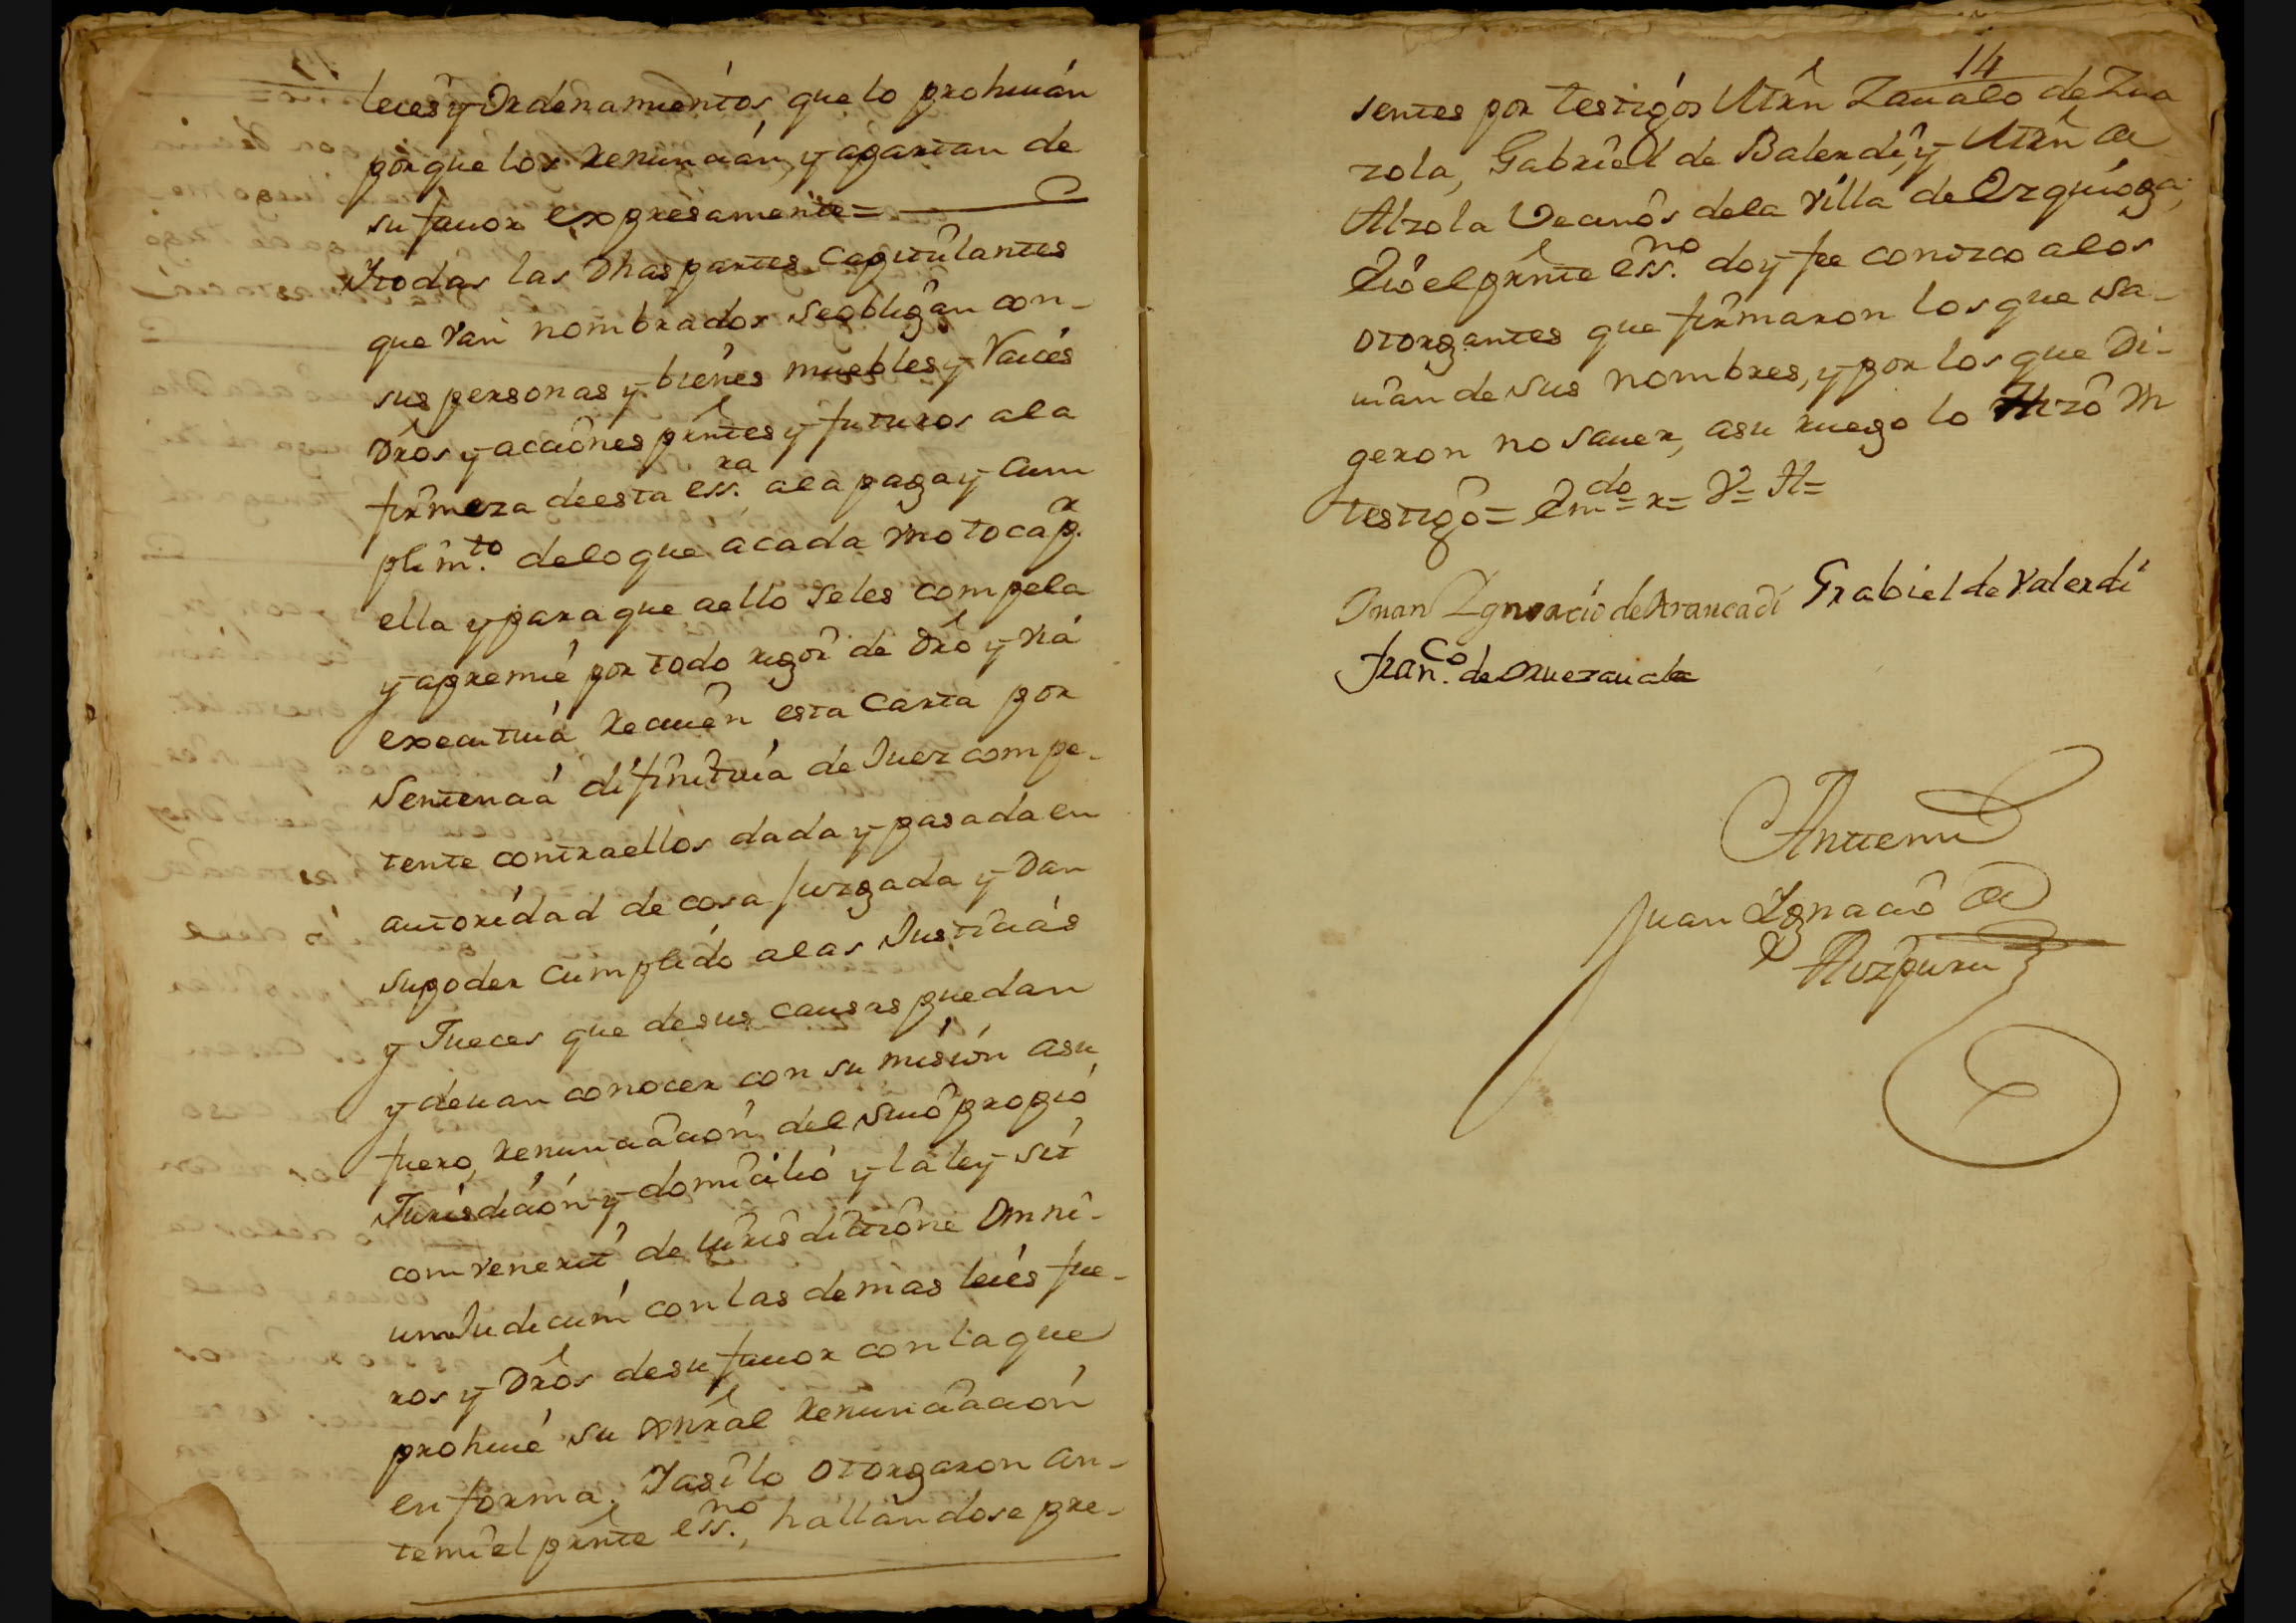 leies y Ordenamientos que lo prohiuan
porque los renuncian, y apartan de
su fauor expresamente =
Itodas las Dhas partes Capitulantes
que van nombrados se obligan con
sus personas y bienes muebles y Raices
Dros y acciones prntes y futuros a la
firmeza de esta ess.ra a la paga y Cum
plim.to de lo que a cada vno toca p.r
ella y para que a ello se les compela
y apremie por todo rigor de Dro y via
executiua Reciuen esta Carta por
Sentencia difinitiua de Juez compe-
tente contra ellos dada y pasada en
autoridad de cosa Juzgada y Dan
su poder Cumplido a las Justicias
y Jueces que de sus causas puedan
y deuan conocer con su mision a su
fuero, renunciacion del suio propio
Jurisdicion y domicilio y la ley sit
convenerit de iurisdictione Omni-
um Judicum con las demas leies fue-
ros y Dros de su fauor con la que
prohiue su Gnral Renunciacion
en forma. I asi lo otorgaron an-
te mi el prnte ess.no, hallandose pre-
14
sentes por testigos Mrn Zaualo de Zua
zola, Gabriel de Balerdi, y Mrn de
Alzola Vecinos de la Villa de Ezquioga,
E io el prnte ess.no doy fee conozco a los
otorgantes que firmaron los que sa-
uian de sus nombres, y por los que Di-
geron no sauer, a su ruego lo Hizo vn
testigo = Em.do = r = V = H =
Juan Ygnacio de Arancadi Grabiel de Valerdi
Fran.co de Oruezauala
Anttemi
Juan Ygnacio de
Aizpuru